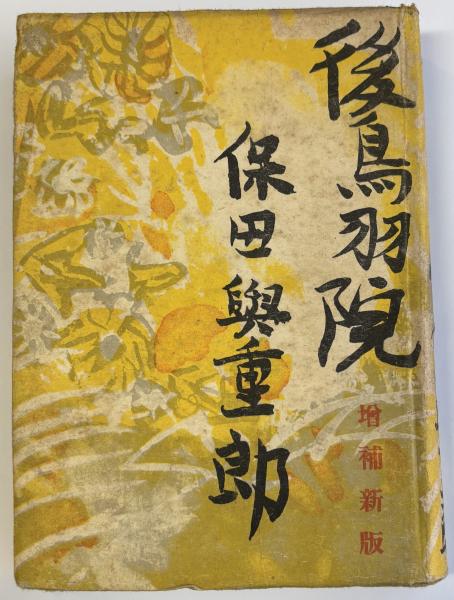 後鳥羽院
增補新版
保田與重郎